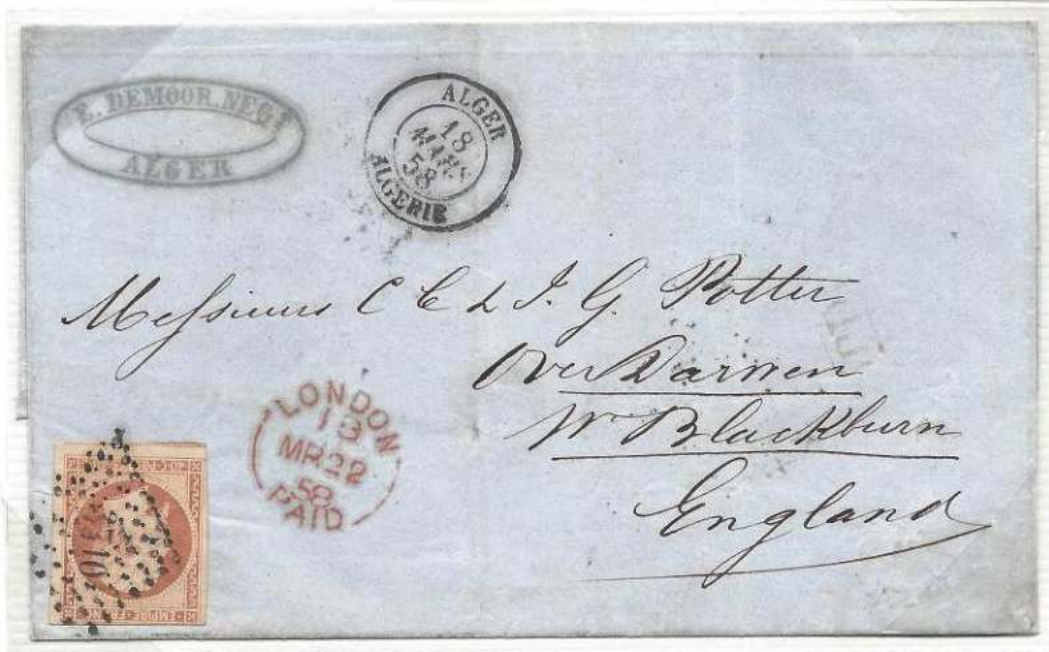 E. DEMOOR. NEGT
ALGER
ALGER
18
MARS
58
ALGERIE
Messieurs C & J. G. Potter
Over Darwen
Nr Blackburn
England
LONDON
13
MR 22
58
PAID
EMPIRE